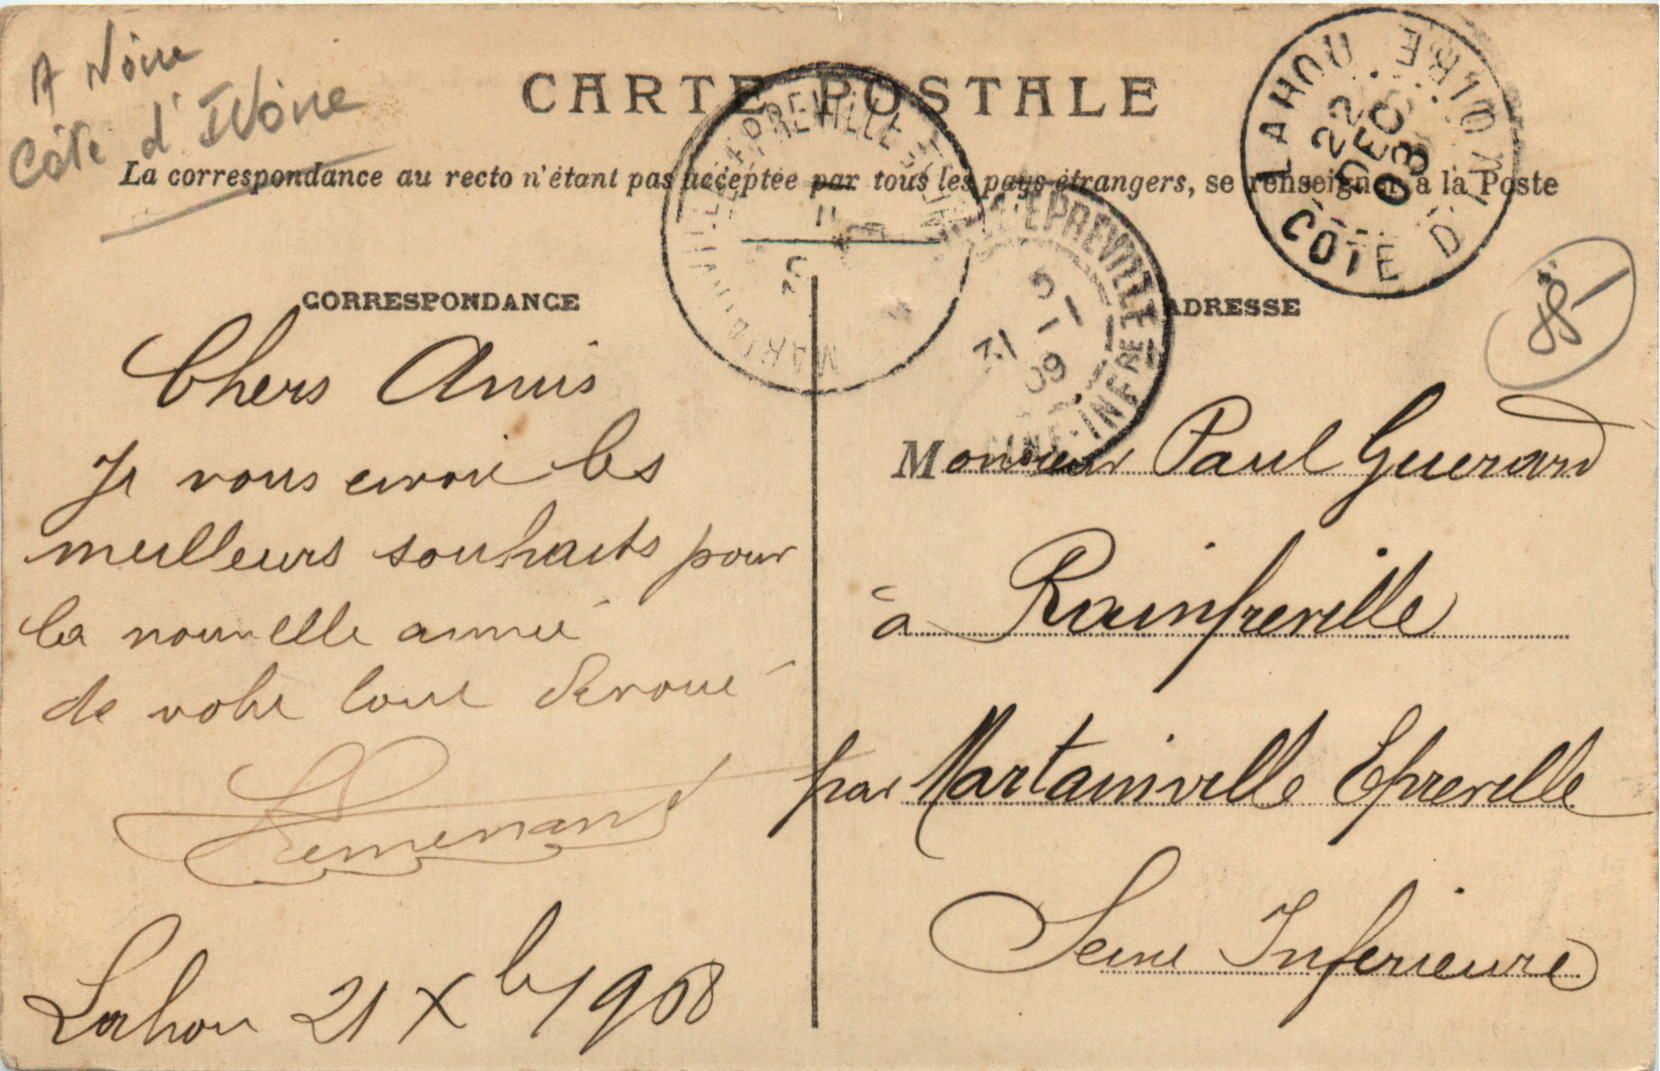 A Noire
Côte d'Ivoire
CARTE POSTALE
La correspondance au recto n'étant pas acceptée par tous les pays étrangers, se renseigner à la Poste
LAHOU
COTE D'IVOIRE
22
DEC
08
MARTAINVILLE-EPREVILLE
EPREVILLE
5-1
09
SEINE-INFRE
CORRESPONDANCE
Chers Amis
Je vous envoie les
meilleurs souhaits pour
la nouvelle année
de votre tout dévoué
Lahou 21 Xbre 1908
ADRESSE
Monsieur Paul Guerard
à Rainfreville
par Martainville Epreville
Seine Inferieure